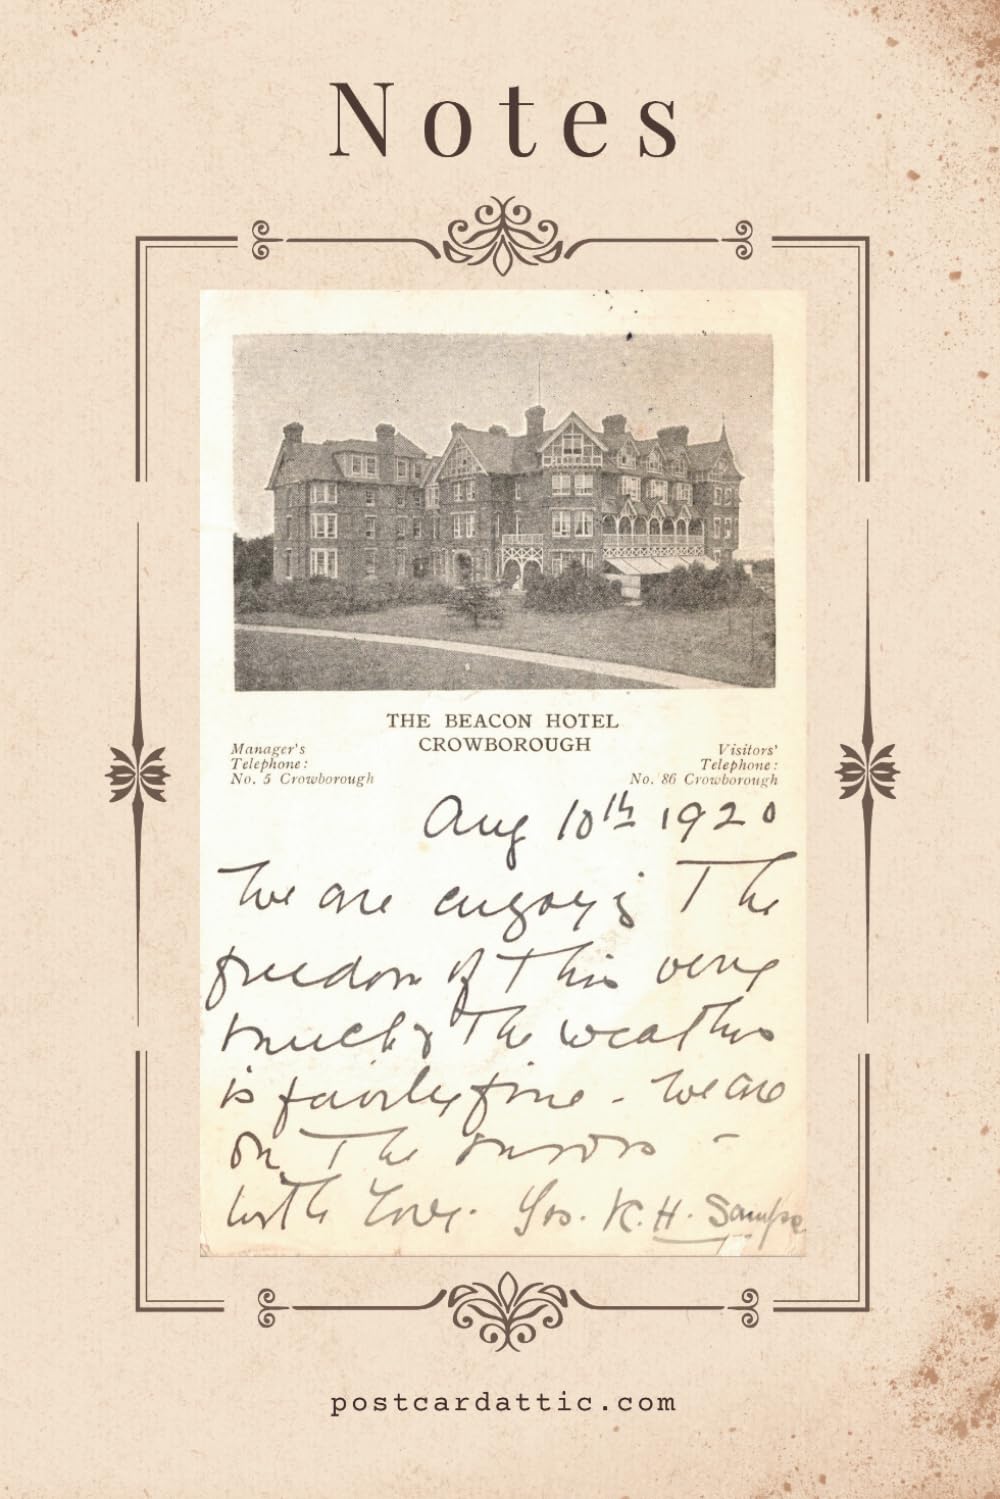 Notes
THE BEACON HOTEL
CROWBOROUGH
Manager's
Telephone:
No. 5 Crowborough
Visitors'
Telephone:
No. 86 Crowborough
Aug 10th 1920
We are enjoying The
freedom of This very
much & The weather
is fairly fine - We are
on The moors -
With Love. Yrs. K. H.
postcardattic.com